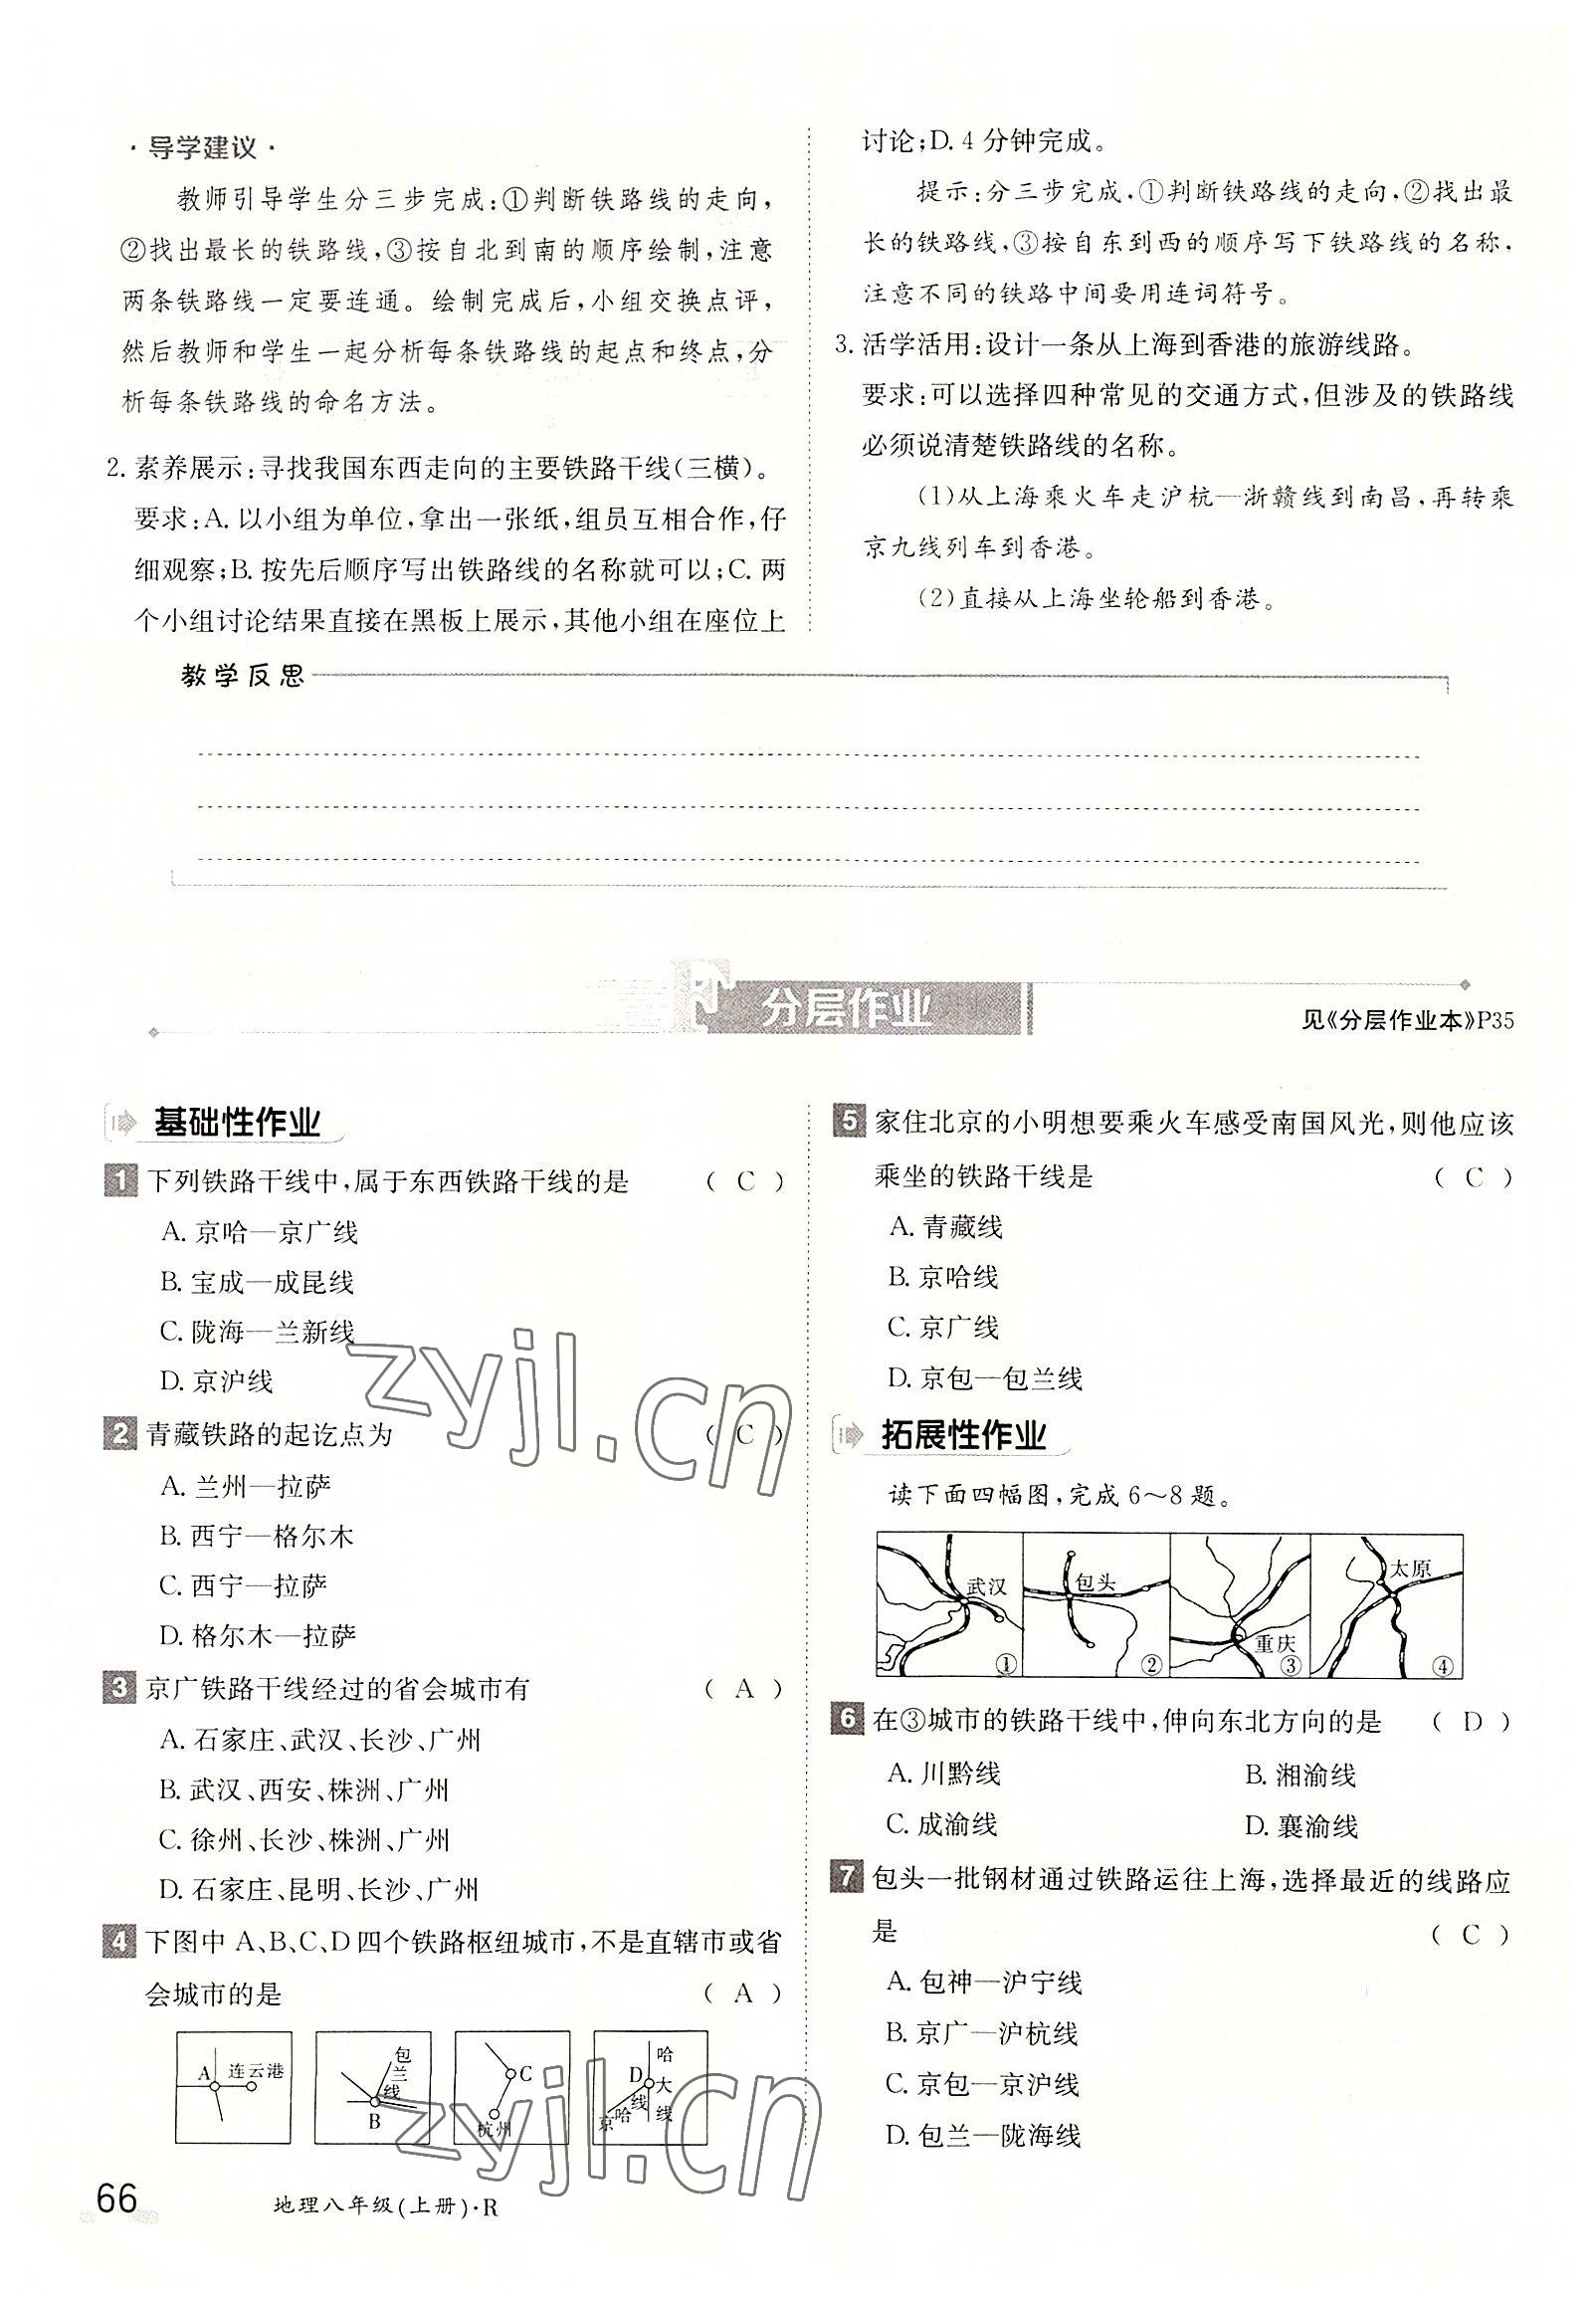 ·导学建议·
教师引导学生分三步完成:①判断铁路线的走向,
②找出最长的铁路线,③按自北到南的顺序绘制,注意
两条铁路线一定要连通。绘制完成后,小组交换点评,
然后教师和学生一起分析每条铁路线的起点和终点,分
析每条铁路线的命名方法。
2. 素养展示:寻找我国东西走向的主要铁路干线(三横)。
要求:A. 以小组为单位,拿出一张纸,组员互相合作,仔
细观察;B. 按先后顺序写出铁路线的名称就可以;C. 两
个小组讨论结果直接在黑板上展示,其他小组在座位上
讨论;D. 4 分钟完成。
提示:分三步完成,①判断铁路线的走向,②找出最
长的铁路线,③按自东到西的顺序写下铁路线的名称,
注意不同的铁路中间要用连词符号。
3. 活学活用:设计一条从上海到香港的旅游线路。
要求:可以选择四种常见的交通方式,但涉及的铁路线
必须说清楚铁路线的名称。
(1)从上海乘火车走沪杭—浙赣线到南昌,再转乘
京九线列车到香港。
(2)直接从上海坐轮船到香港。
教学反思
分层作业
见《分层作业本》P35
基础性作业
1 下列铁路干线中,属于东西铁路干线的是 ( C )
A. 京哈—京广线
B. 宝成—成昆线
C. 陇海—兰新线
D. 京沪线
2 青藏铁路的起讫点为 ( C )
A. 兰州—拉萨
B. 西宁—格尔木
C. 西宁—拉萨
D. 格尔木—拉萨
3 京广铁路干线经过的省会城市有 ( A )
A. 石家庄、武汉、长沙、广州
B. 武汉、西安、株洲、广州
C. 徐州、长沙、株洲、广州
D. 石家庄、昆明、长沙、广州
4 下图中 A、B、C、D 四个铁路枢纽城市,不是直辖市或省
会城市的是 ( A )
A 连云港
包兰线 B
C 杭州
D 哈大线 京哈线
5 家住北京的小明想要乘火车感受南国风光,则他应该
乘坐的铁路干线是 ( C )
A. 青藏线
B. 京哈线
C. 京广线
D. 京包—包兰线
拓展性作业
读下面四幅图,完成 6～8 题。
武汉 ①
包头 ②
重庆 ③
太原 ④
6 在③城市的铁路干线中,伸向东北方向的是 ( D )
A. 川黔线 B. 湘渝线
C. 成渝线 D. 襄渝线
7 包头一批钢材通过铁路运往上海,选择最近的线路应
是 ( C )
A. 包神—沪宁线
B. 京广—沪杭线
C. 京包—京沪线
D. 包兰—陇海线
66
地理八年级(上册)·R
zyjl.cn
zyjl.cn